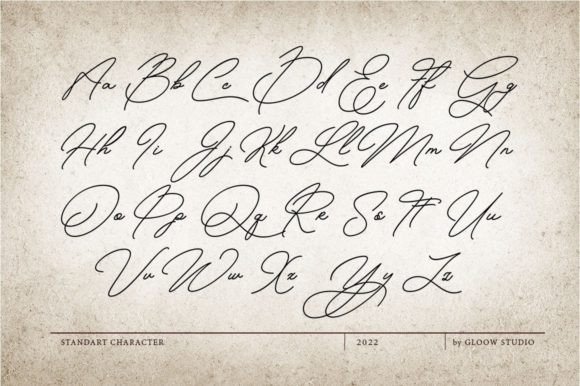 Aa Bb Cc Dd Ee Ff Gg
Hh Ii Jj Kk Ll Mm Nn
Oo Pp Qq Rr Ss Tt Uu
Vv Ww Xx Yy Zz
STANDART CHARACTER 2022 by GLOOW STUDIO